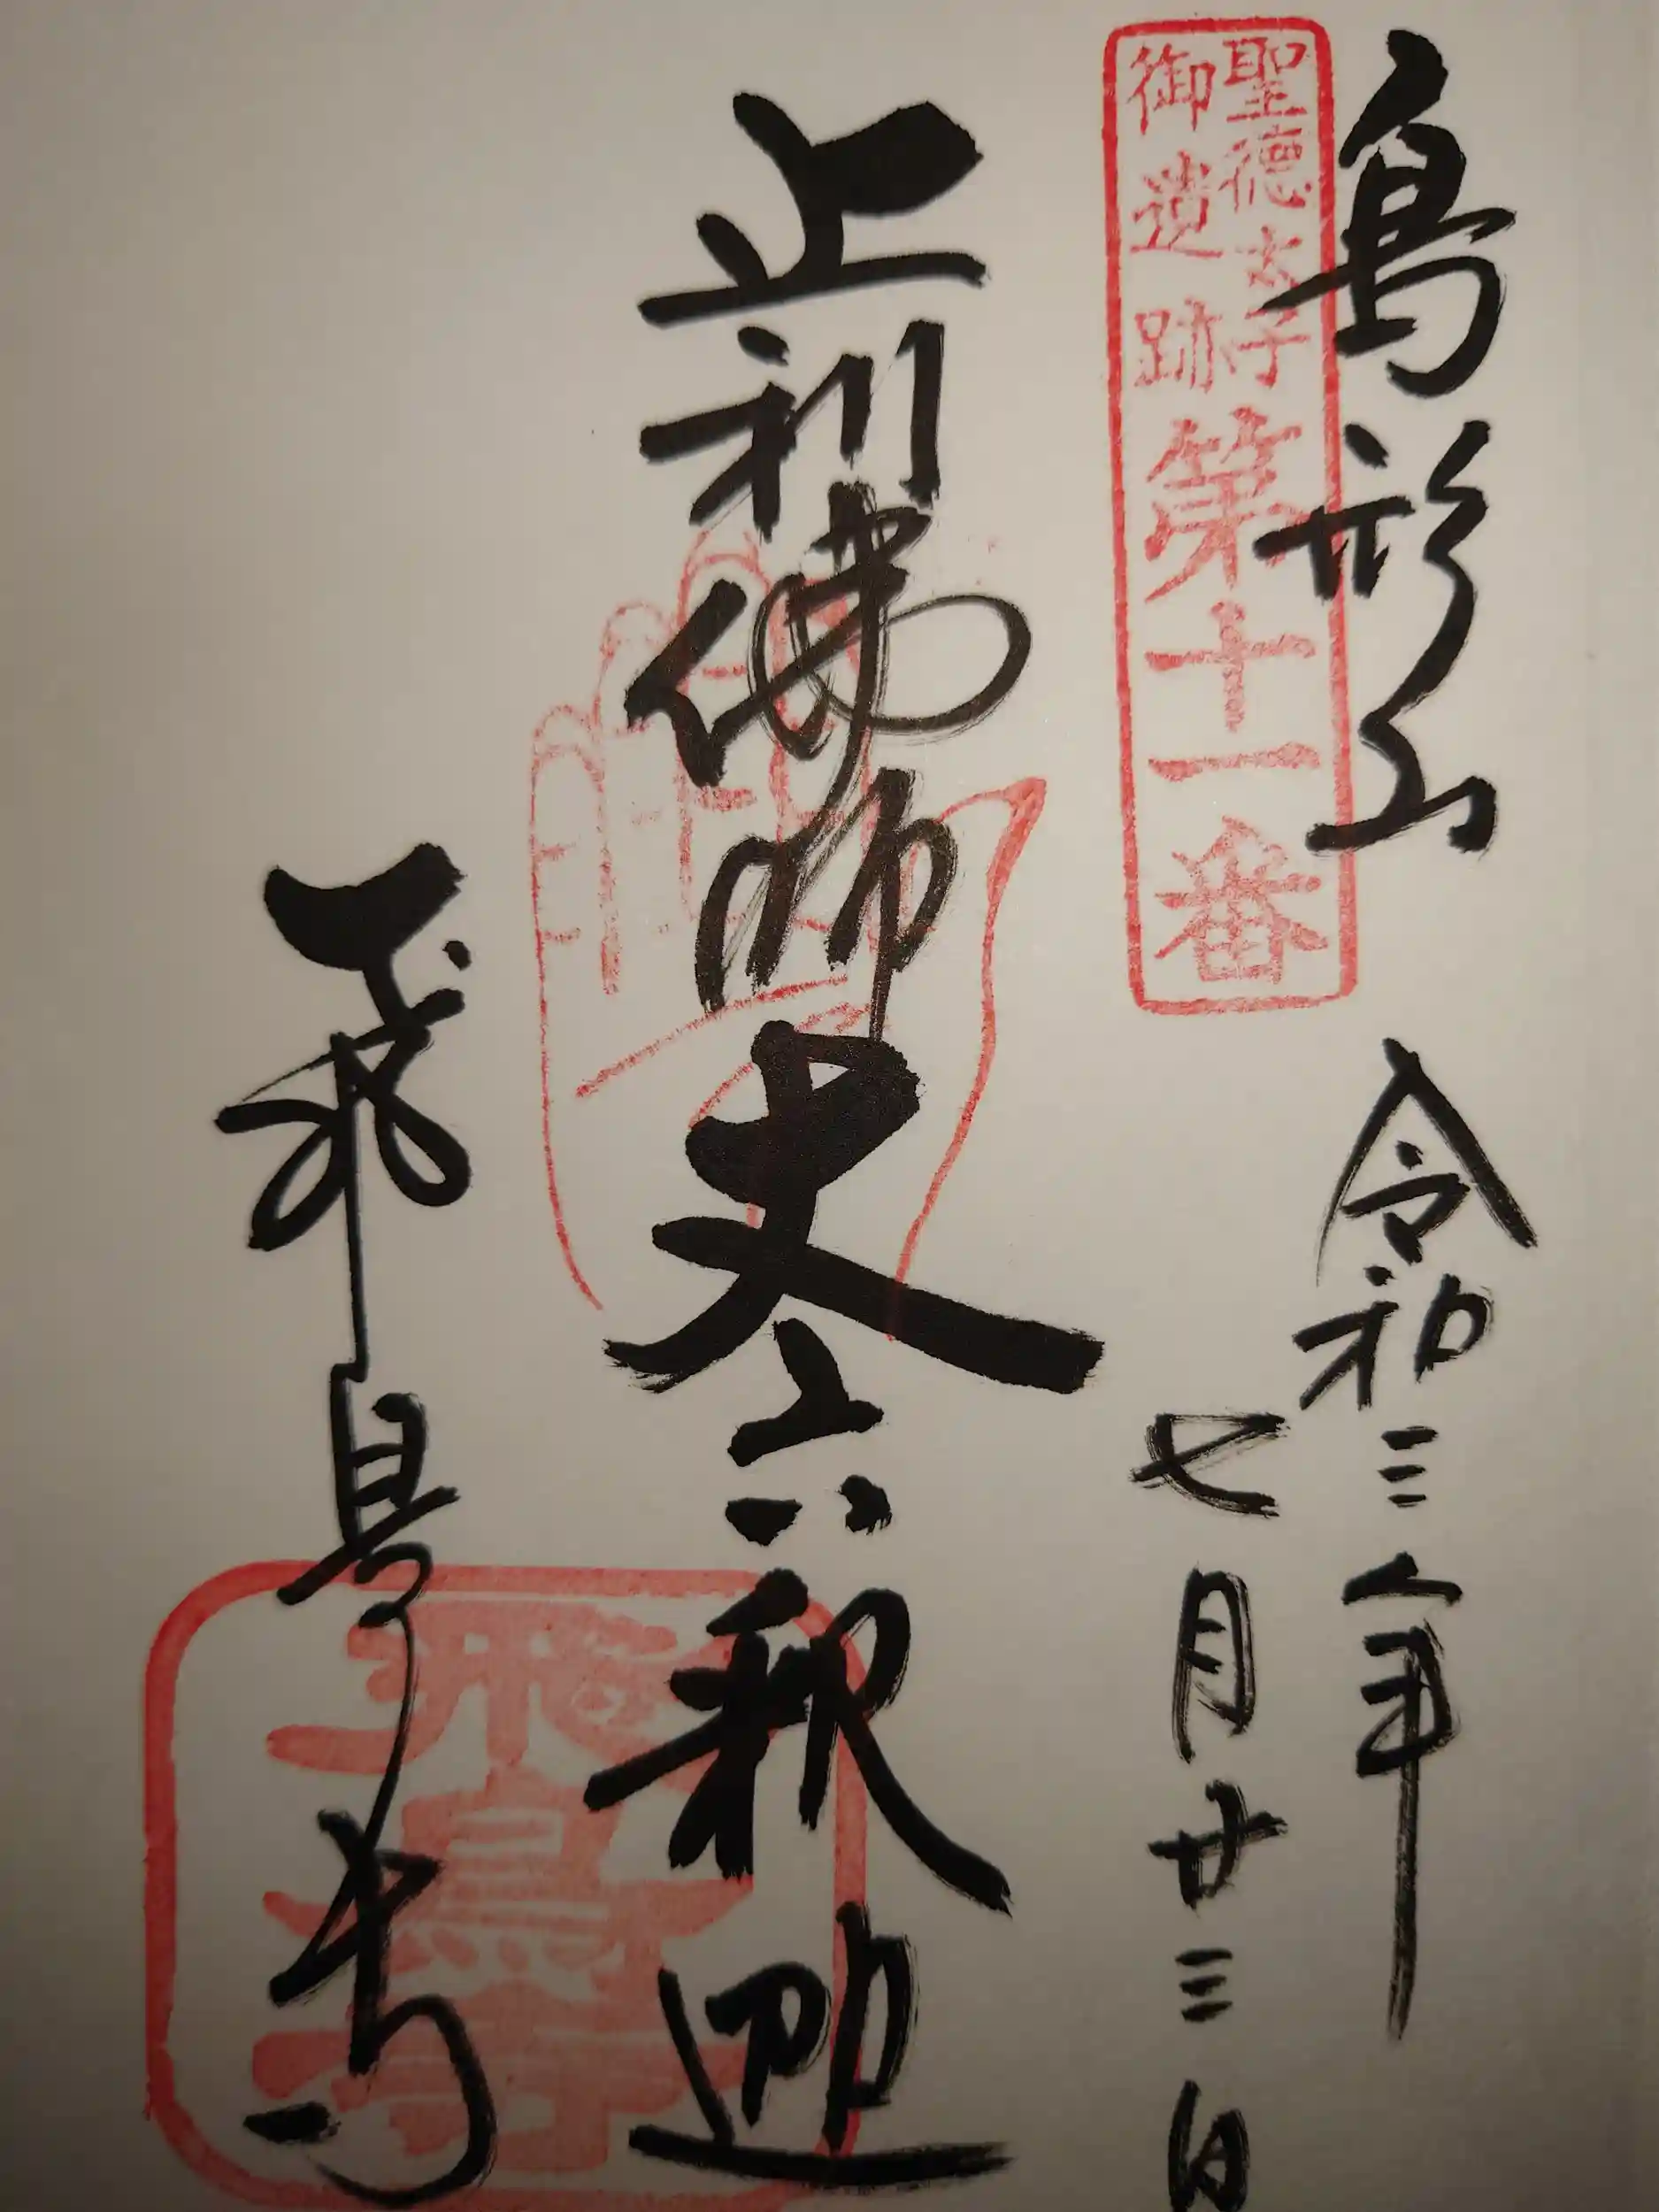 鳥形山
令和三年
七月廿三日
聖徳太子
御遺跡
第十一番
止利佛師丈六釈迦
飛鳥寺
飛鳥寺